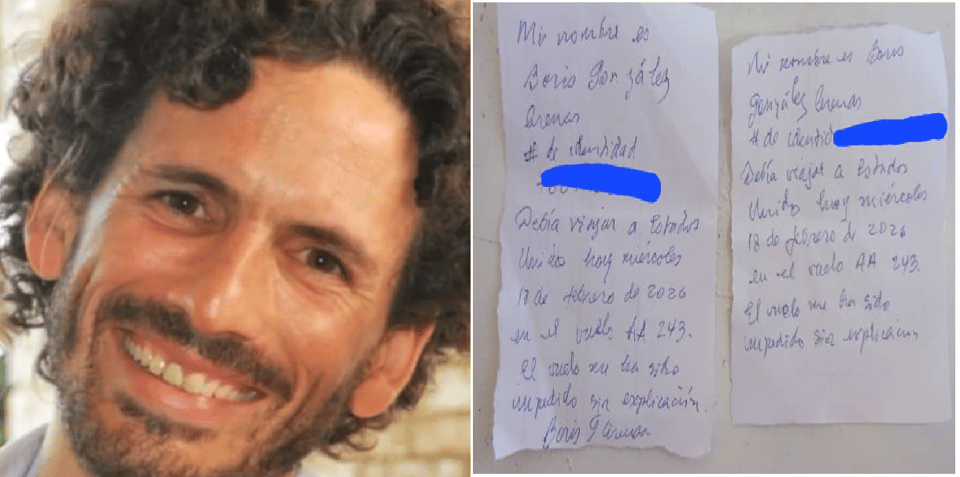 Mi nombre es
Boris González
Arenas
# de identidad
Debía viajar a Estados
Unidos hoy miércoles
18 de febrero de 2026
en el vuelo AA 243.
El vuelo me ha sido
impedido sin explicación.
Boris
Mi nombre es Boris
González Arenas
# de identid
Debía viajar a Estados
Unidos hoy miércoles
18 de febrero de 2026
en el vuelo AA 243.
El vuelo me ha sido
impedido sin explicación